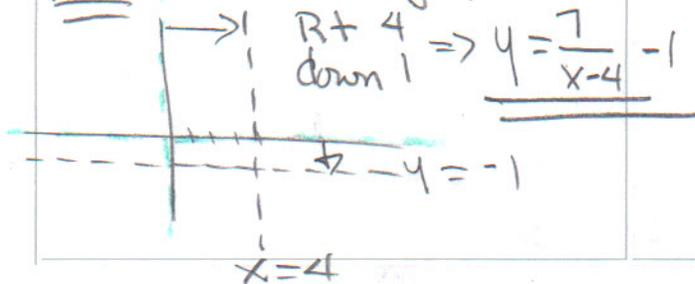 Rt 4
down 1 => y = 7/(x-4) - 1
y = -1
x = 4